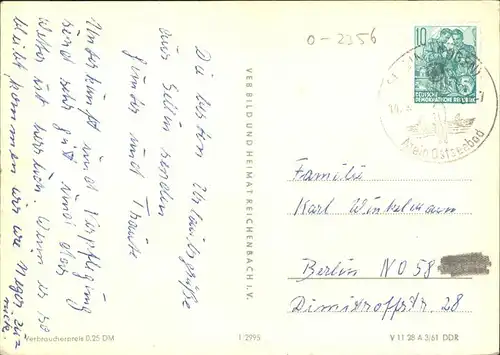 Die besten Urlaubsgrüße
aus Sellin senden
Günter und Traute
Unterkunft und Verpflegung
sind sehr gut und das
Wetter ist herrlich. Wenn es so
bleibt, kommen wir wie Neger zu=
rück.
Verbraucherpreis 0,25 DM
VEB BILD UND HEIMAT REICHENBACH I. V.
1/2995
0-2356
10
DEUTSCHE
DEMOKRATISCHE REPUBLIK
Dein Ostseebad
Familie
Karl Winkelmann
Berlin NO 58
Dimitroffstr. 28
V 11 28 A 3/61 DDR